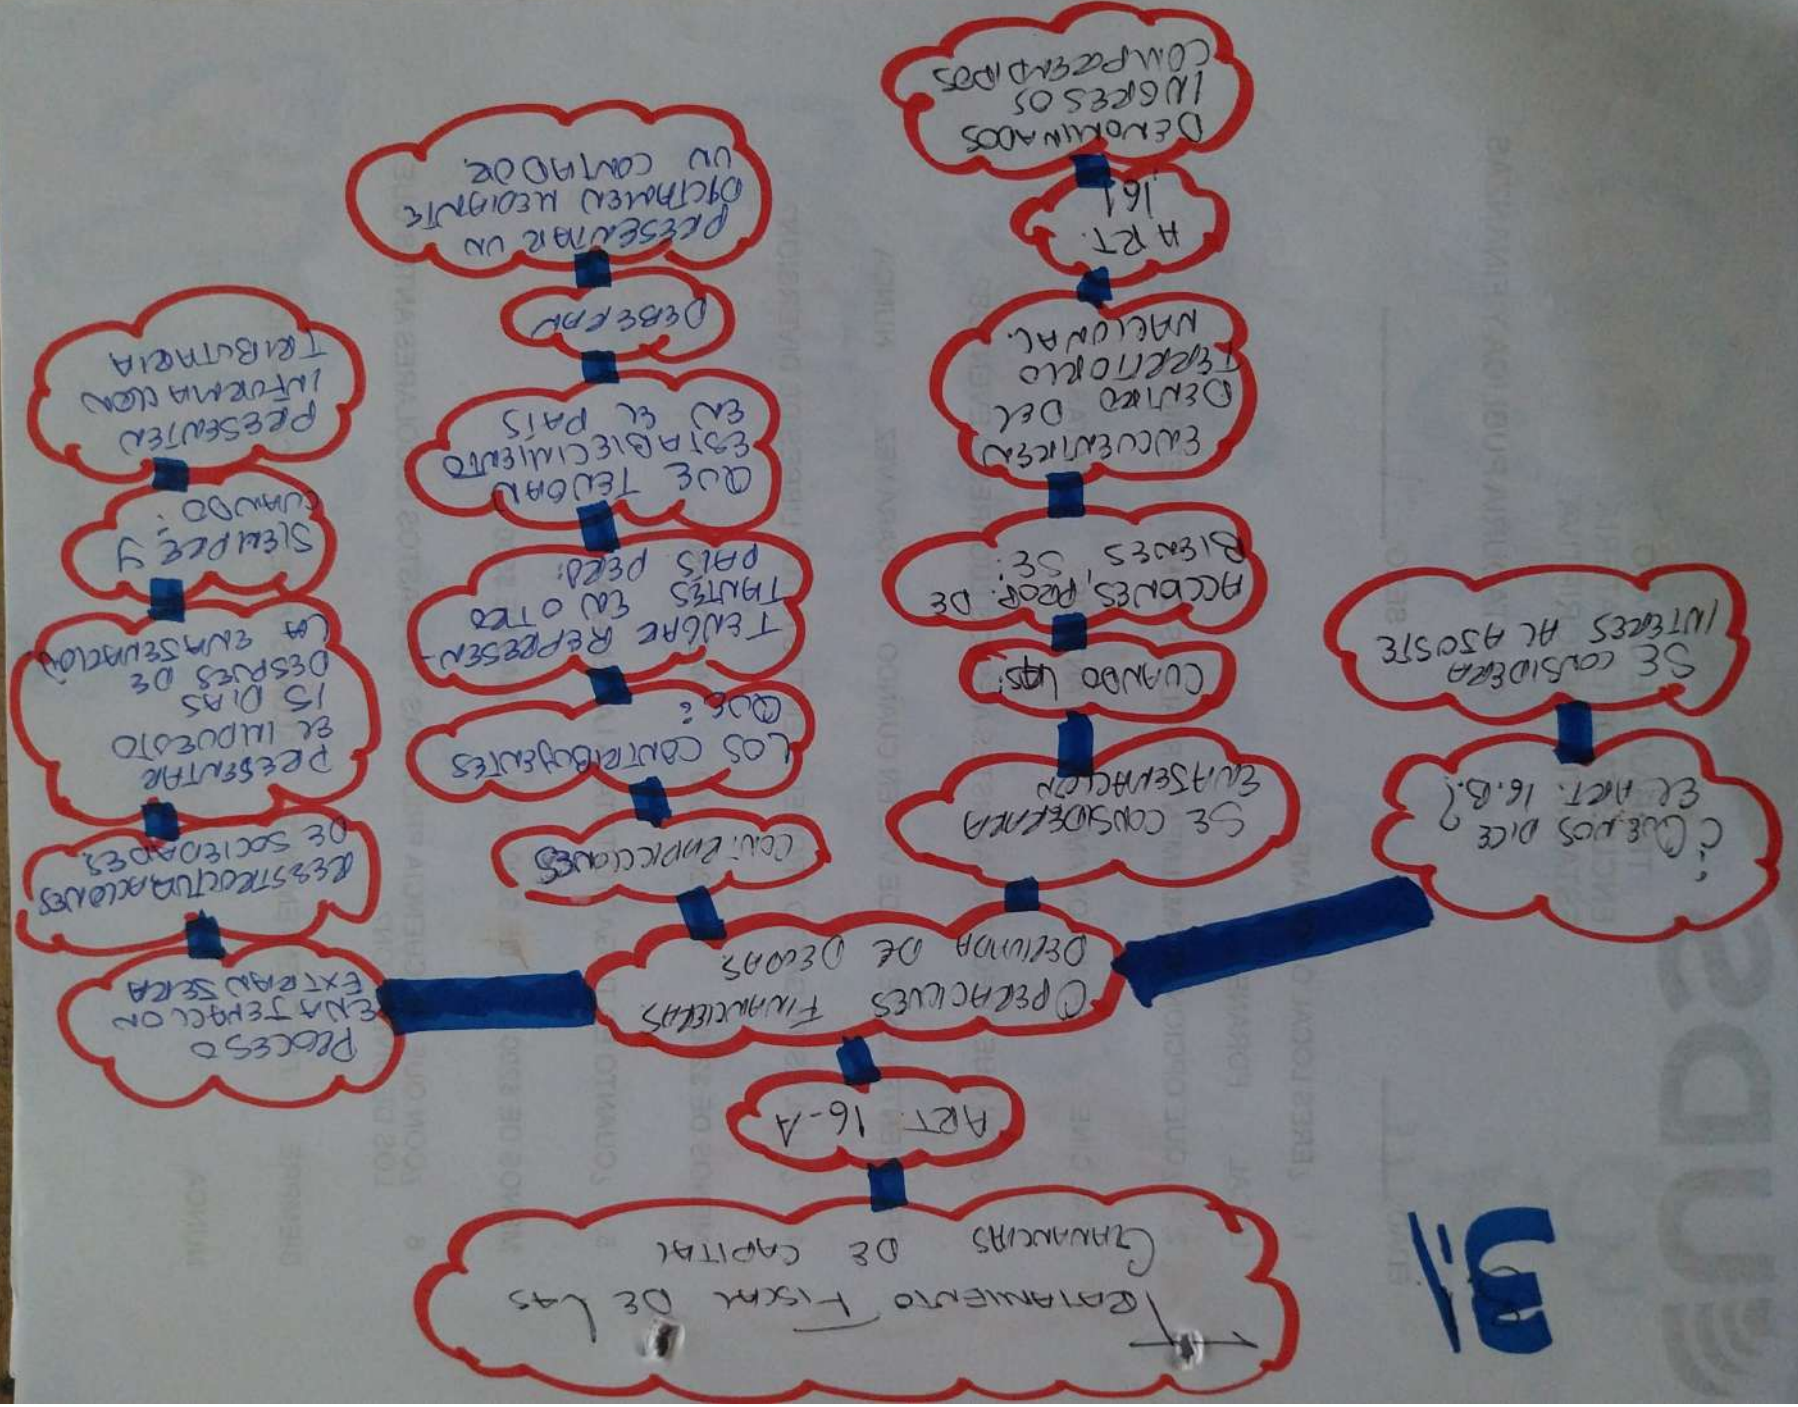 3.1
TRATAMIENTO FISCAL DE LAS
GANANCIAS DE CAPITAL
ART. 16-A
OPERACIONES FINANCIERAS
DERIVADA DE DEUDAS.
¿QUE NOS DICE
EL ART. 16.B.?
SE CONSIDERA
INTERES AL AJUSTE
SE CONSIDERARA
ENAJENACION
CUANDO LAS:
ACCIONES, PROP. DE
BIENES, SE:
ENCUENTREN
DENTRO DEL
TERRITORIO
NACIONAL.
ART.
161
DENOMINADOS
INGRESOS
COMPRENDIDOS
LOS CONTRIBUYENTES
QUE:
TENGAN REPRESEN-
TANTES EN OTRO
PAIS PERO:
QUE TENGAN
ESTABLECIMIENTO
EN EL PAÍS
DEBERAN
PRESENTAR UN
DICTAMEN MEDIANTE
UN CONTADOR.
PROCESO
ENAJENACION
EXTRANJERA
REESTRUCTURACIONES
DE SOCIEDADES.
PRESENTAR
EL IMPUESTO
15 DIAS
DESPUES DE
LA ENAJENACION
SIEMPRE Y
CUANDO:
PRESENTEN
INFORMACION
TRIBUTARIA
UDS